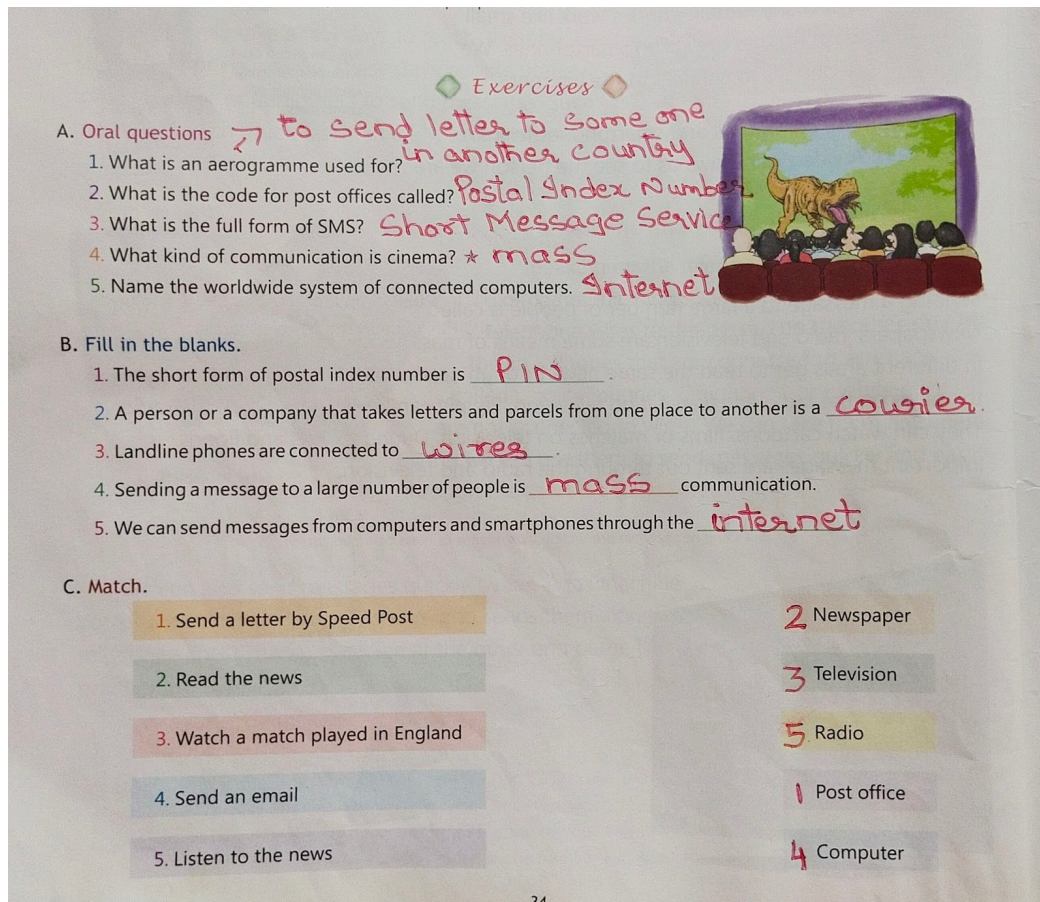 Exercises
A. Oral questions → to send letter to some one
in another country
1. What is an aerogramme used for?
2. What is the code for post offices called? Postal Index Number
3. What is the full form of SMS? Short Message Service
4. What kind of communication is cinema? * mass
5. Name the worldwide system of connected computers. Internet
B. Fill in the blanks.
1. The short form of postal index number is PIN.
2. A person or a company that takes letters and parcels from one place to another is a courier.
3. Landline phones are connected to wires.
4. Sending a message to a large number of people is mass communication.
5. We can send messages from computers and smartphones through the internet
C. Match.
1. Send a letter by Speed Post 2 Newspaper
2. Read the news 3 Television
3. Watch a match played in England 5 Radio
4. Send an email 1 Post office
5. Listen to the news 4 Computer